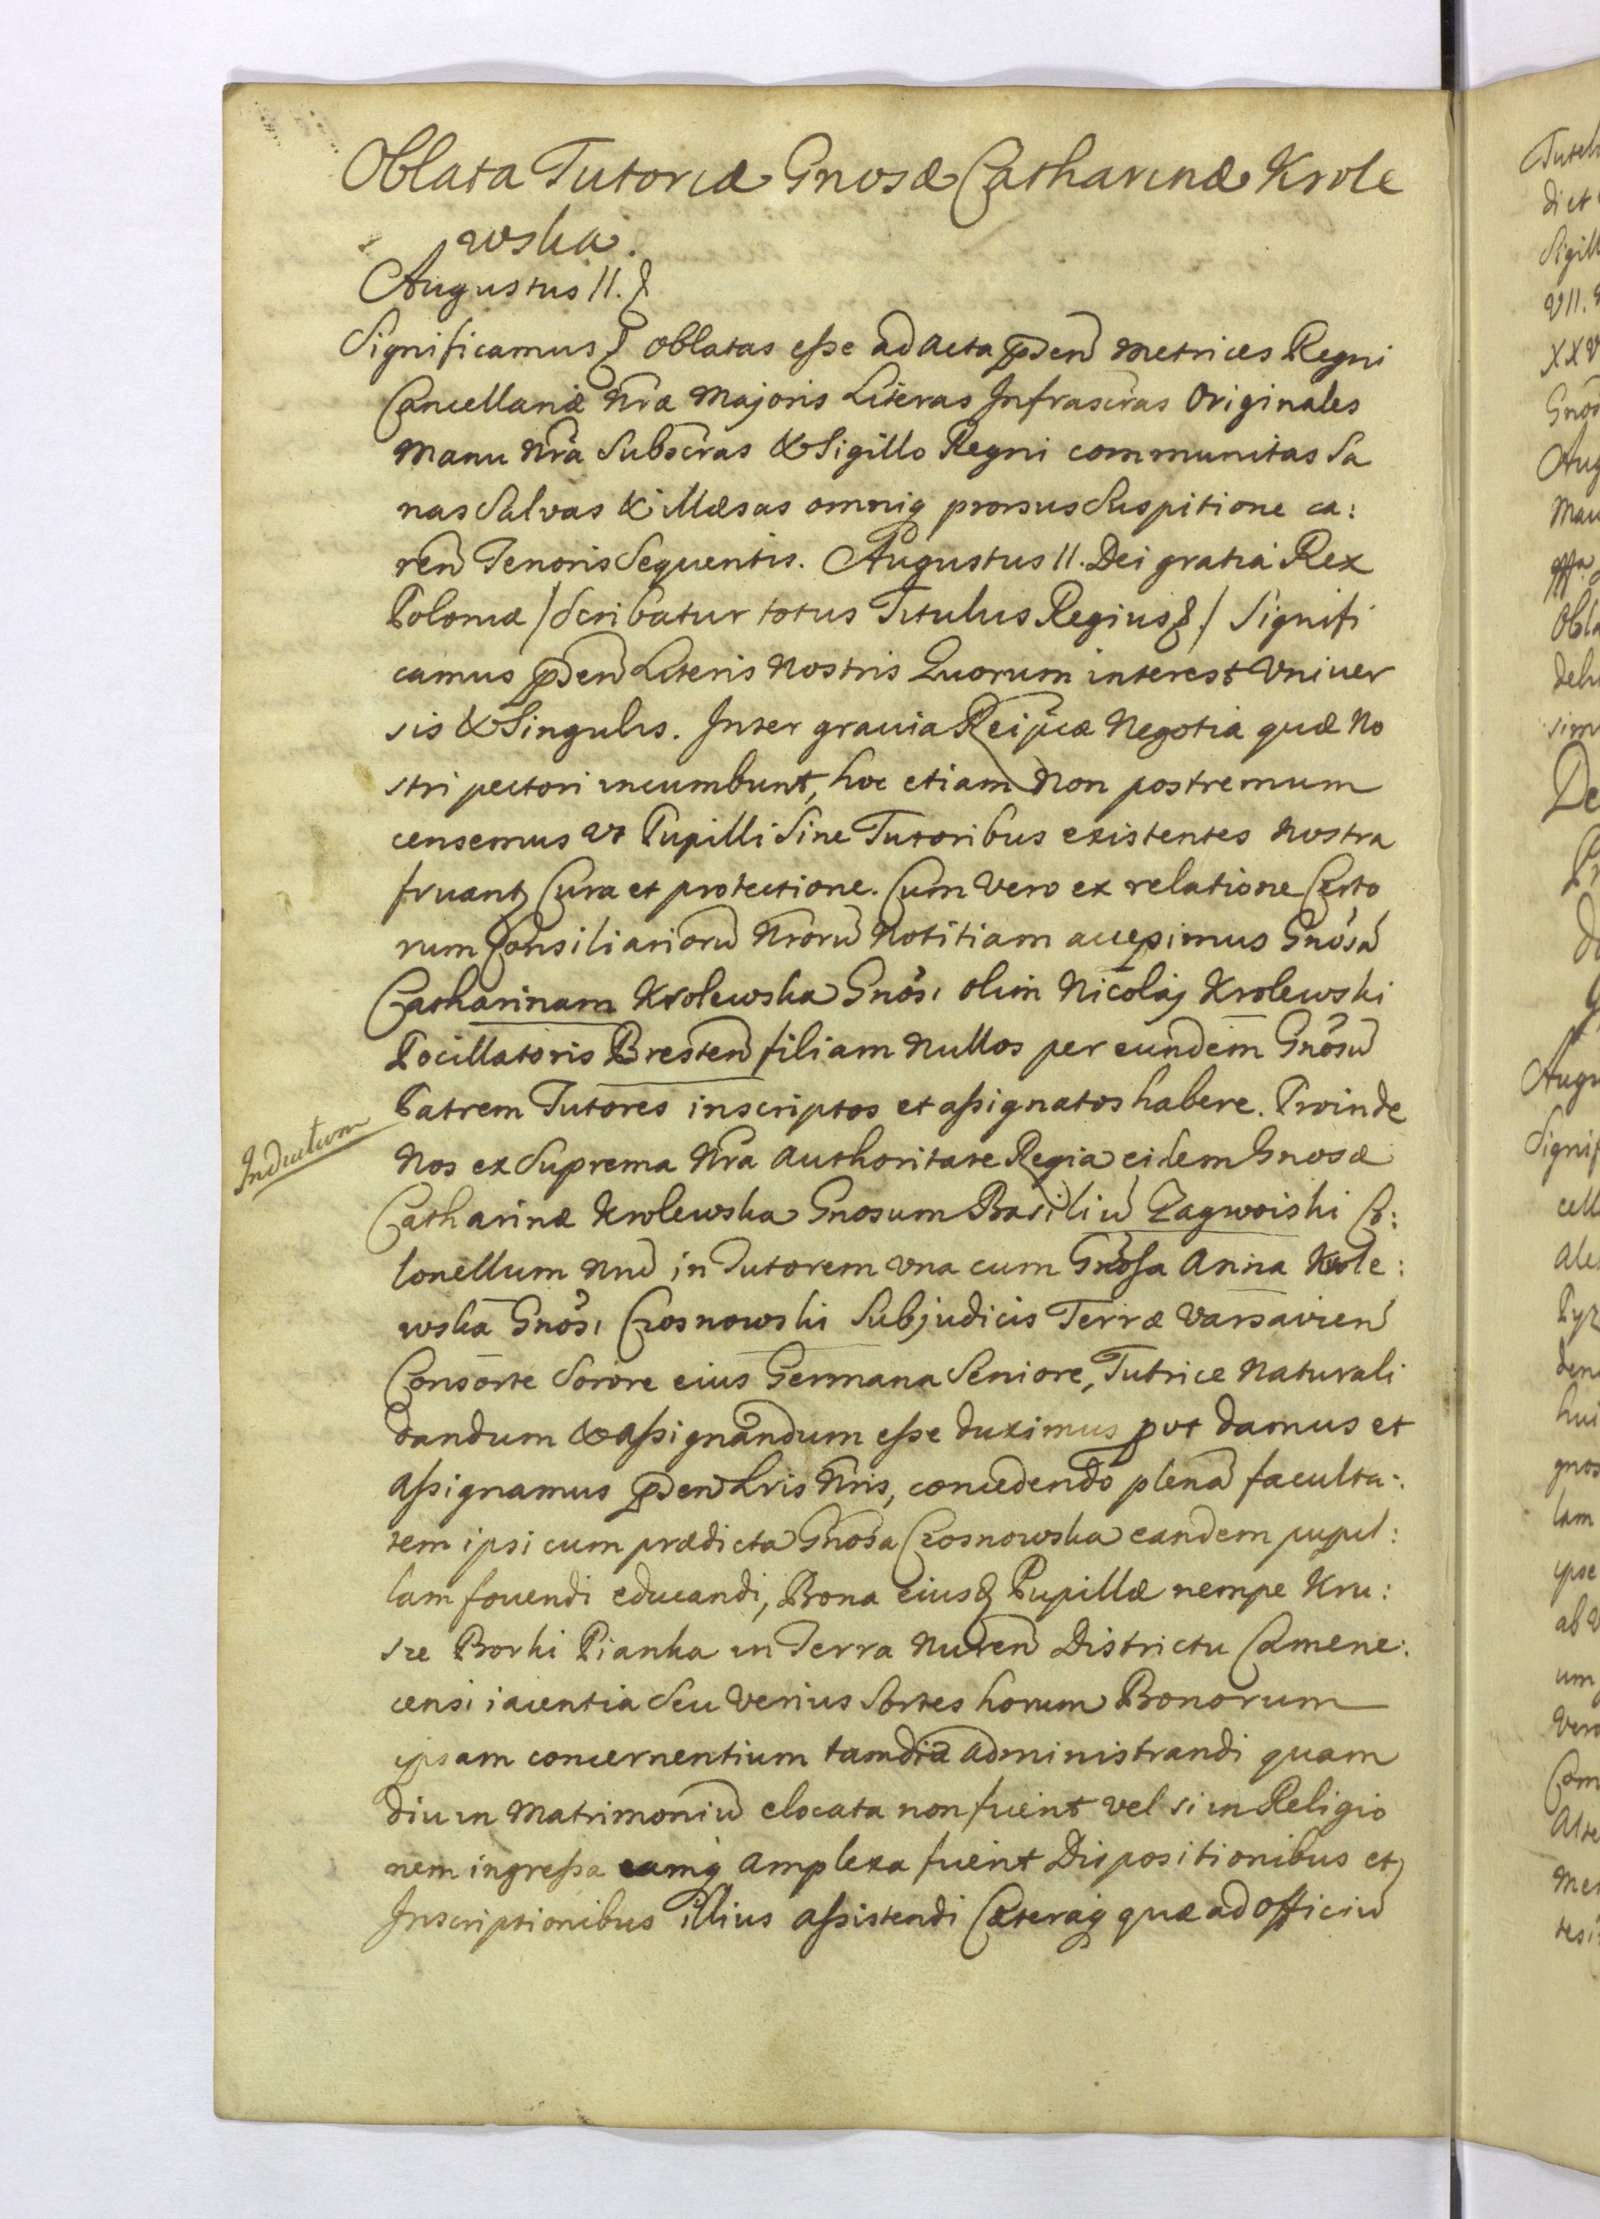 Oblata Tutoriæ Gnosæ Catharinæ Krole
wska.
Augustus II.
Significamus oblatas eße ad acta pñtem Metrices Regni
Cancellariæ Nræ Majoris Literas Infrascrãs Originales
Manu Nrã Subscrãs & Sigillo Regni communitas Sa
nas Salvas & illæsas omniq prorsus Suspitione ca:
reñ Tenoris Sequentis. Augustus II. Dei gratia Rex
Poloniæ / Scribatur totus Titulus Regius / Signifi
camus Literis Nostris Quorum interest Vniver
sis & Singulis. Inter gravia Reipcæ Negotia quæ No
stri pectori incumbunt, hoc etiam Non postremum
censemus vt Pupilli Sine Tutoribus existentes Nostra
fruant Cura et protectione. Cum Vero ex relatione Certo
rum Consiliariorũ Nrorũ Notitiam accepimus Gnosã
Catharinam Krolewska Gnosi olim Nicolaj Krolewski
Pocillatoris Bresteñ filiam Nullos per eundem Gnosũ
Patrem Tutores inscriptos et aßignatos habere. Proinde
Nos ex Suprema Nra Authoritate Regia eidem Gnosæ
Catharinæ Krolewska Gnosum Basiliũ Zagwoiski Co:
lonellum Nrũ in Tutorem vna cum Gnosa Anna Krole:
wska Gnosi Czosnowski Subjudicis Terræ Varsavieñ
Consorte Sorore eius Germana Seniore, Tutrice Naturali
dandum & aßignandum eße duximus put damus et
Aßignamus Lris Nris, concedendo plenã faculta:
tem ipsi cum prædicta Gnosa Czosnowska eandem pupil:
lam fouendi educandi, Bona eiusd Pupillæ nempe Kru:
sze Borki Pianka in Terra Nureñ Districtu Camene:
censi iacentia Seu Verius Sortes horum Bonorum
ipsam concernentium tamdiu administrandi quam
diu in Matrimoniũ elocata non fuerit vel si in Religio
nem ingreßa eamq amplexa fuerit Dispositionibus et
Inscriptionibus illius aßistendi Cæteraq quæ ad officiũ
Inductum